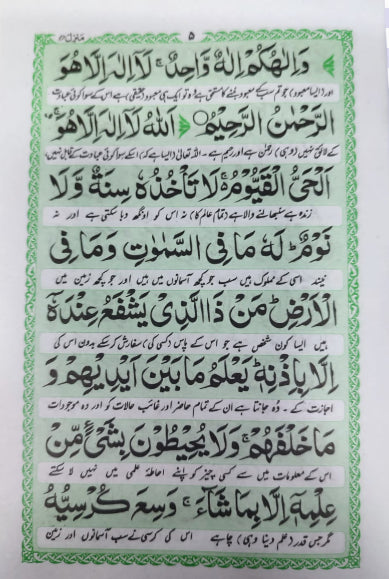 منزل ۵
وَاِلٰهُكُمْ اِلٰهٌ وَّاحِدٌ ۚ لَآ اِلٰهَ اِلَّا هُوَ
اور (ایسا معبود) جو تم سب کے معبود بننے کا مستحق ہے وہ تو ایک ہی معبود (حقیقی) ہے اس کے سوا کوئی عبادت
الرَّحْمٰنُ الرَّحِيْمُ ۝ اَللّٰهُ لَآ اِلٰهَ اِلَّا هُوَ ۚ
کے لائق نہیں (وہی) رحمٰن ہے اور رحیم ہے ۔ اللہ تعالیٰ (ایسا ہے کہ) اسکے سوا کوئی عبادت کے قابل نہیں
اَلْحَيُّ الْقَيُّوْمُ ۚ لَا تَاْخُذُهٗ سِنَةٌ وَّلَا
زندہ ہے سنبھالنے والا ہے (تمام عالم کا) نہ اس کو اونگھ دبا سکتی ہے اور نہ
نَوْمٌ ؕ لَهٗ مَا فِى السَّمٰوٰتِ وَمَا فِى
نیند اسی کے مملوک ہیں سب جو کچھ آسمانوں میں ہیں اور جو کچھ زمین میں
الْاَرْضِ ؕ مَنْ ذَا الَّذِىْ يَشْفَعُ عِنْدَهٗٓ
ہیں ایسا کون شخص ہے جو اس کے پاس (کسی کی) سفارش کر سکے بدون اس کی
اِلَّا بِاِذْنِهٖ ؕ يَعْلَمُ مَا بَيْنَ اَيْدِيْهِمْ وَ
اجازت کے ۔ وہ جانتا ہے ان کے تمام حاضر اور غائب حالات کو اور وہ موجودات
مَا خَلْفَهُمْ ۚ وَلَا يُحِيْطُوْنَ بِشَىْءٍ مِّنْ
اس کے معلومات میں سے کسی چیز کو اپنے احاطۂ علمی میں نہیں لا سکتے
عِلْمِهٖٓ اِلَّا بِمَا شَآءَ ۚ وَسِعَ كُرْسِيُّهُ
مگر جس قدر (علم دینا وہی) چاہے اس کی کرسی نے سب آسمانوں اور زمین